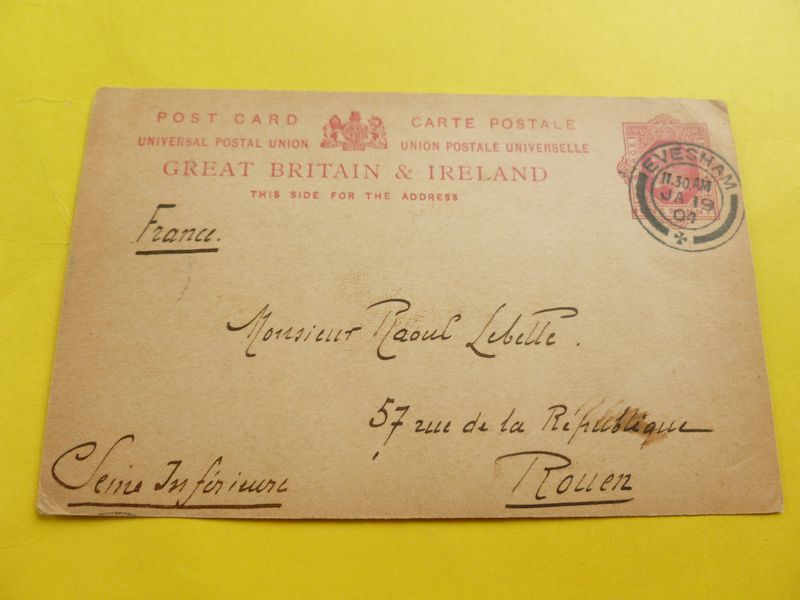 POST CARD CARTE POSTALE
UNIVERSAL POSTAL UNION UNION POSTALE UNIVERSELLE
GREAT BRITAIN & IRELAND
THIS SIDE FOR THE ADDRESS
EVESHAM
11.30 AM
JA 19
04
France.
Monsieur Raoul Lebette.
57 rue de la République
Rouen
Seine Inférieure